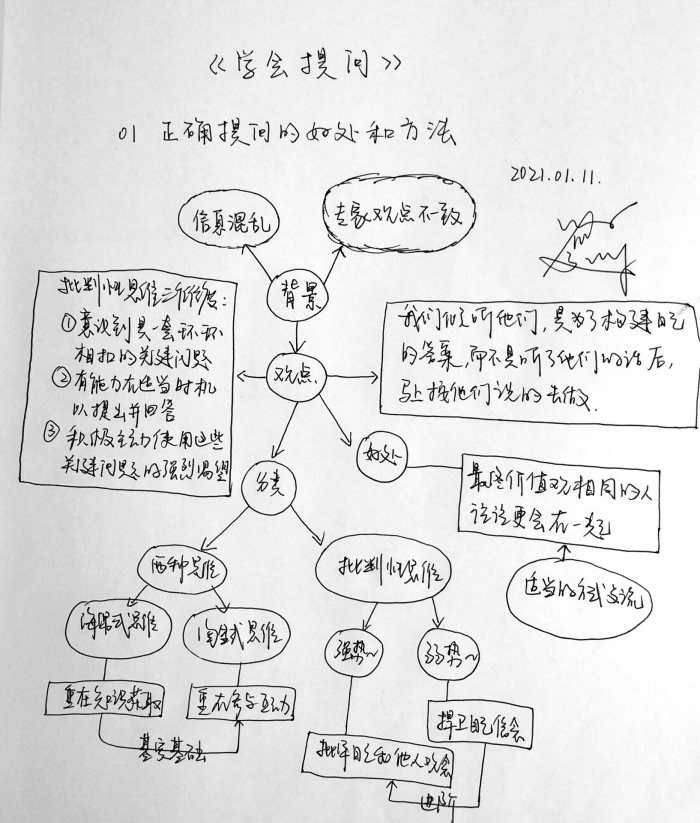 《学会提问》
01 正确提问的好处和方法
2021.01.11.
信息混乱
专家观点不一致
背景
批判性思维三个维度:
①意识到是一套环环
相扣的关键问题
②有能力在适当时机
以提出并回答
③积极主动使用这些
关键问题的强烈渴望
观点
我们倾听他们,是为了构建自己
的答案,而不是听了他们的话后,
马上按他们说的去做
好处
最终价值观相同的人
往往更会在一起
适当的方式交流
分类
两种思维
批判性思维
海绵式思维
淘金式思维
强势~
弱势~
重在知识获取
重在参与互动
基实基础
批评自己和他人观念
捍卫自己信念
进阶